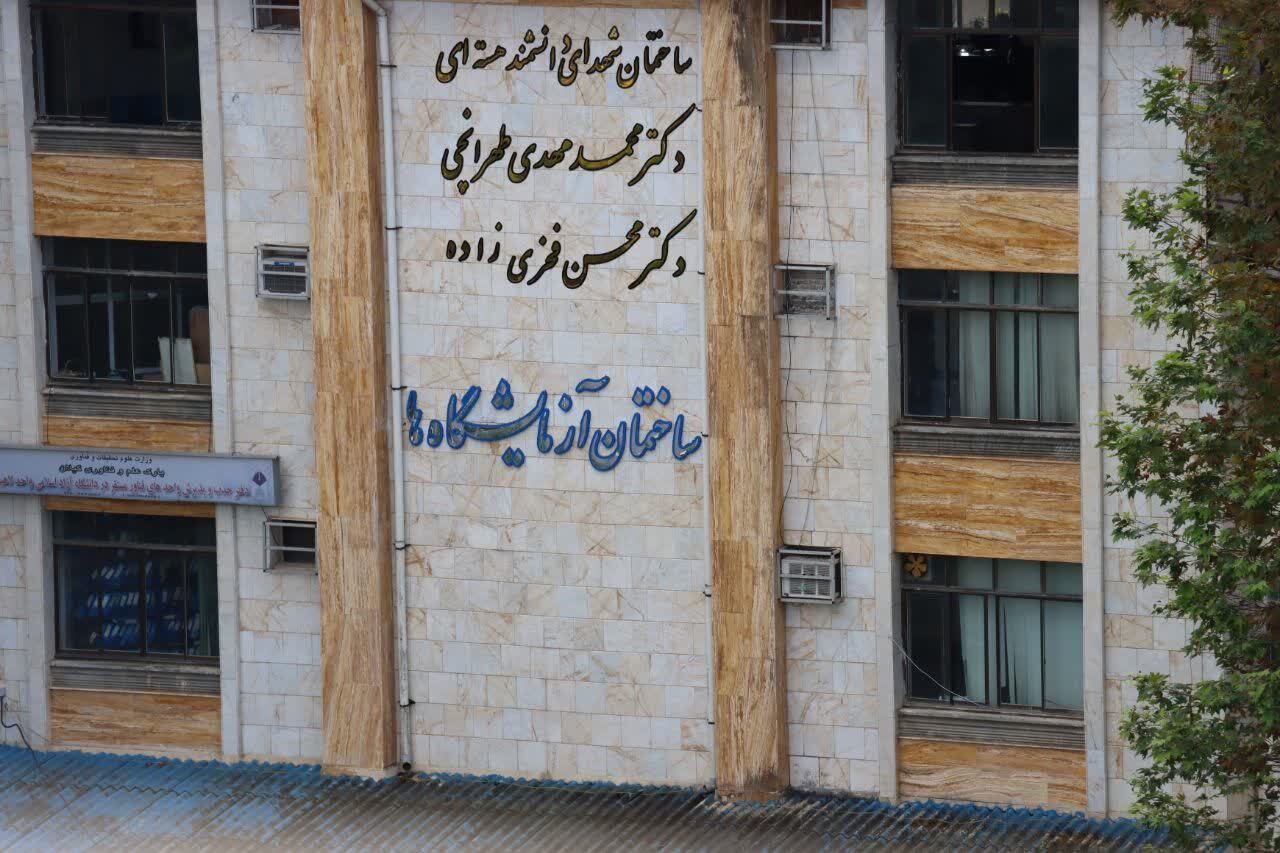 ساختمان شهدای دانشمند هسته ای
دکتر محمد مهدی طهرانچی
دکتر محسن فخری زاده
ساختمان آزمایشگاه ها
وزارت علوم تحقیقات و فناوری
پارک علم و فناوری گیلان
دفتر جذب و پذیرش واحد های فناور مستقر در دانشگاه آزاد اسلامی واحد